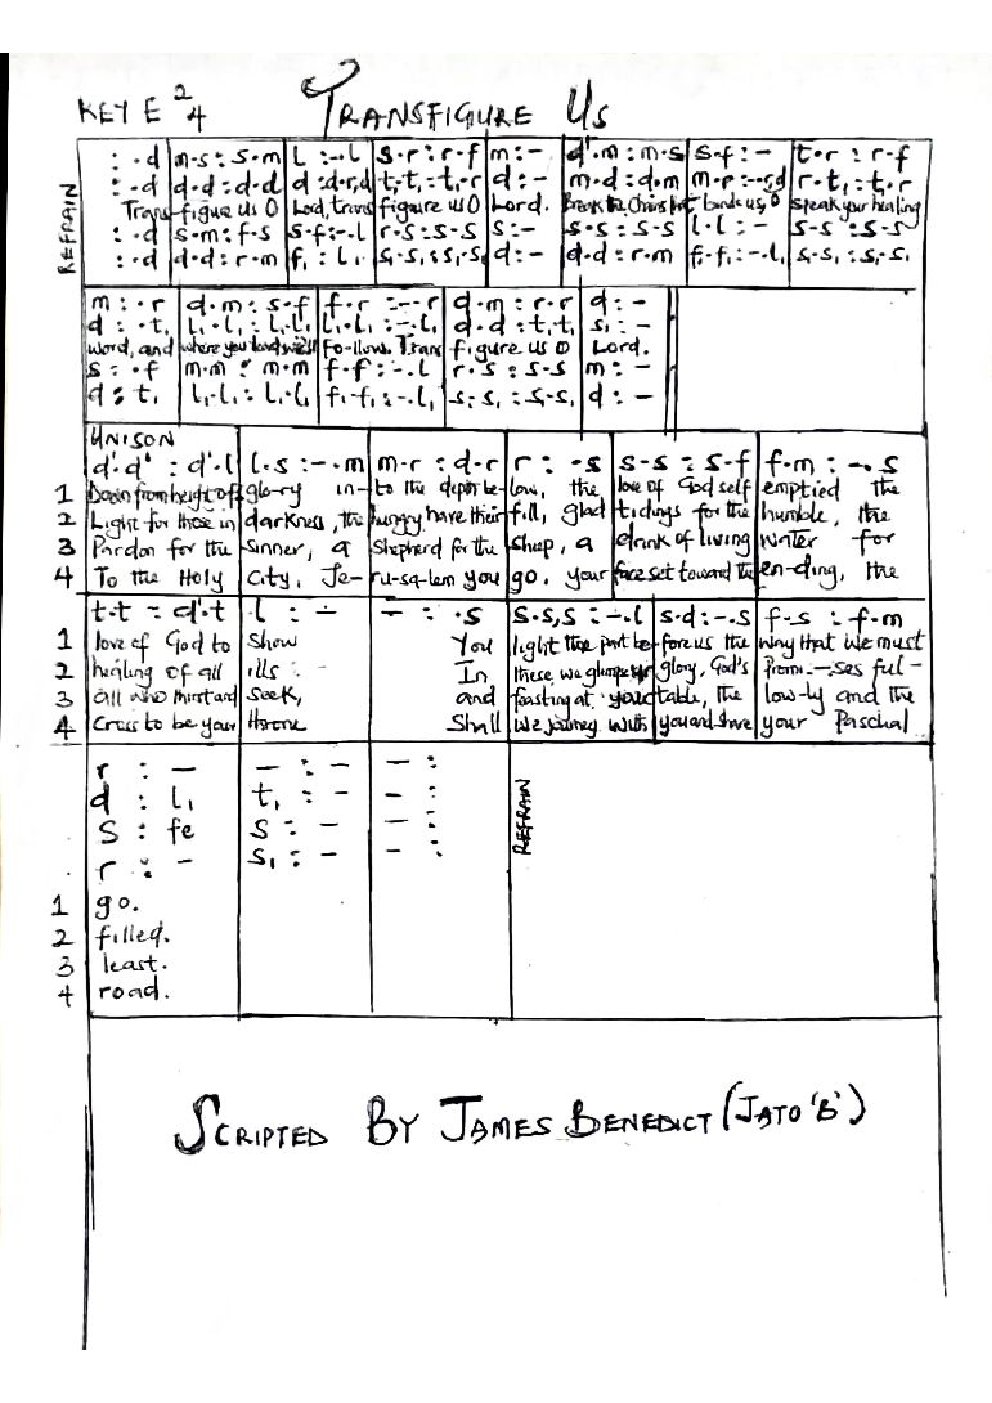 KEY E 2 4 TRANSFIGURE US
REFRAIN
: .d | m.s : s.m | l : -.l | s.r : r.f | m : - | d'.m : m.s | s.f : - | t.r : r.f
: .d | d.d : d.d | d : d.r,d | t₁.t₁ : t₁.r | d : - | m.d : d.m | m.r : -.r,d | r.t₁ : t₁.r
Trans-figure us O Lord, trans figure us O Lord. Break the Chains that binds us, O speak your healing
: .d | s.m : f.s | s.f : -.l | r.s : s.s | s : - | s.s : s.s | l.l : - | s.s : s.s
: .d | d.d : r.m | f₁ : l₁ | s₁.s₁ : s₁.s₁ | d : - | d.d : r.m | f₁.f₁ : -.l₁ | s₁.s₁ : s₁.s₁
m : .r | d.m : s.f | f.r : -.r | d.m : r.r | d : -
d : .t₁ | l₁.l₁ : l₁.l₁ | l₁.l₁ : -.l₁ | d.d : t₁.t₁ | s₁ : -
word, and where you lead we'll Fo-llow. Trans figure us O Lord.
s : .f | m.m : m.m | f.f : -.l | r.s : s.s | m : -
d : t₁ | l₁.l₁ : l₁.l₁ | f₁.f₁ : -.l₁ | s₁.s₁ : s₁.s₁ | d : -
UNISON
d'.d' : d'.l | l.s : -.m | m.r : d.r | r : .s | s.s : s.f | f.m : -.s
1 Down from height of glo-ry in-to the depth be-low, the love of God self emptied the
2 Light for those in darkness, the hungry have their fill, glad tidings for the humble, the
3 Pardon for the Sinner, a Shepherd for the Sheep, a drink of living water for
4 To the Holy City, Je-ru-sa-lem you go, your face set toward the en-ding, the
t.t : d'.t | l : - | - : .s | s.s,s : -.l | s.d : -.s | f.s : f.m
1 love of God to Show You light the part be-fore us the way that we must
2 healing of all ills : - In these, we glimpse your glory, God's Promi-ses ful-
3 all who thirst and Seek, and feasting at your table, the low-ly and the
4 Cross to be your throne Shall we journey with you and share your Paschal
r : - | - : - | - :
d : l₁ | t₁ : - | - :
s : fe | s : - | - :
r : - | s₁ : - | - :
REFRAIN
1 go.
2 filled.
3 least.
4 road.
SCRIPTED BY JAMES BENEDICT (JATO 'B')